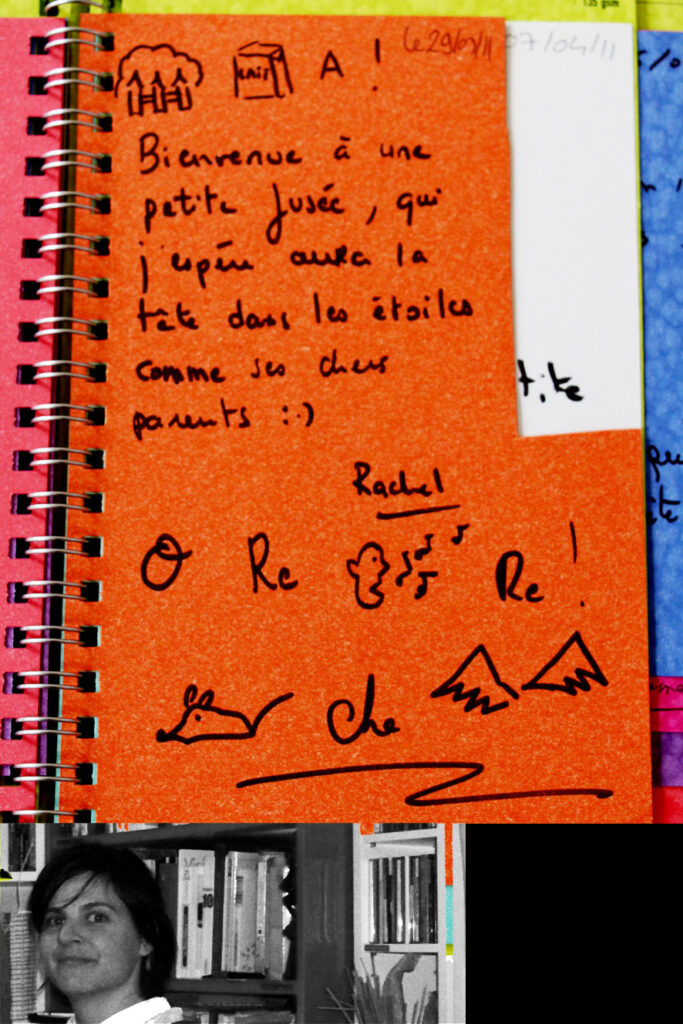 135 gsm
Le 29/03/11 07/04/11
LAIT A !
Bienvenue à une
petite fusée, qui
j'espère aura la
tête dans les étoiles
comme ses chers
parents :-)
Rachel
O Re Re !
che